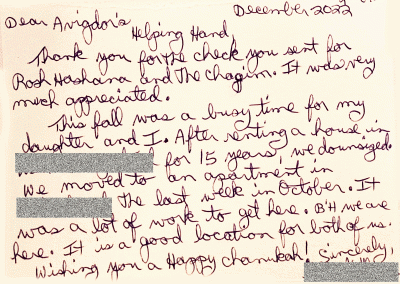 December 2022
Dear Avigdor's
Helping Hand,
Thank you for the check you sent for
Rosh Hashana and the chagim. It was very
much appreciated.
This fall was a busy time for my
daughter and I. After renting a house in
for 15 years, we downsized.
We moved to an apartment in
the last week in October. It
was a lot of work to get here. B"H we are
here. It is a good location for both of us.
Wishing you a Happy chanukah! Sincerely,